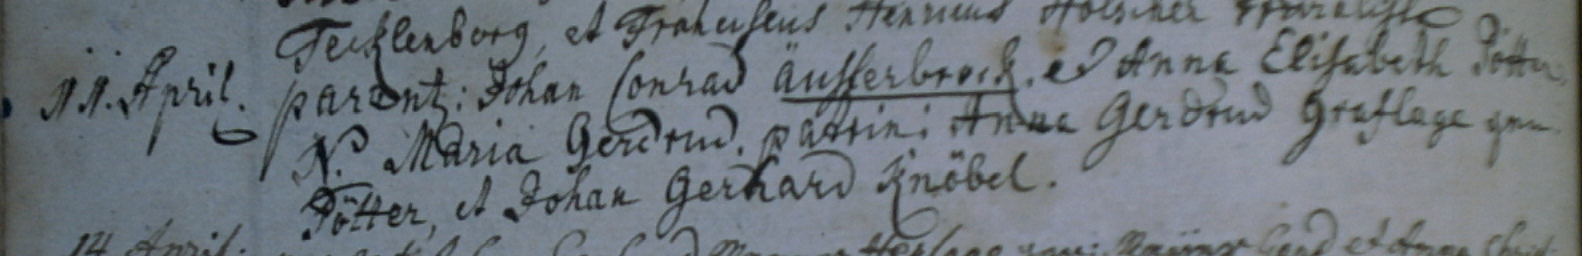 Tecklenborg, et Franciscus Henricus Hölscher
11. April. parent: Johan Conrad Äusserbrock. et Anna Elisabeth Pötter,
N. Maria Gerdrud. patrin: Anna Gerdrud Graflage gen.
Pötter, et Johan Gerhard Knöbel.
14 April.